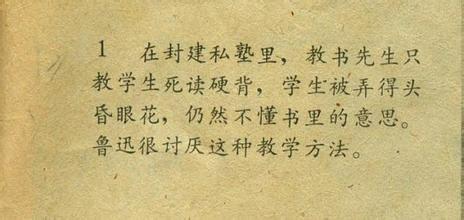 1 在封建私塾里，教书先生只
教学生死读硬背，学生被弄得头
昏眼花，仍然不懂书里的意思。
鲁迅很讨厌这种教学方法。